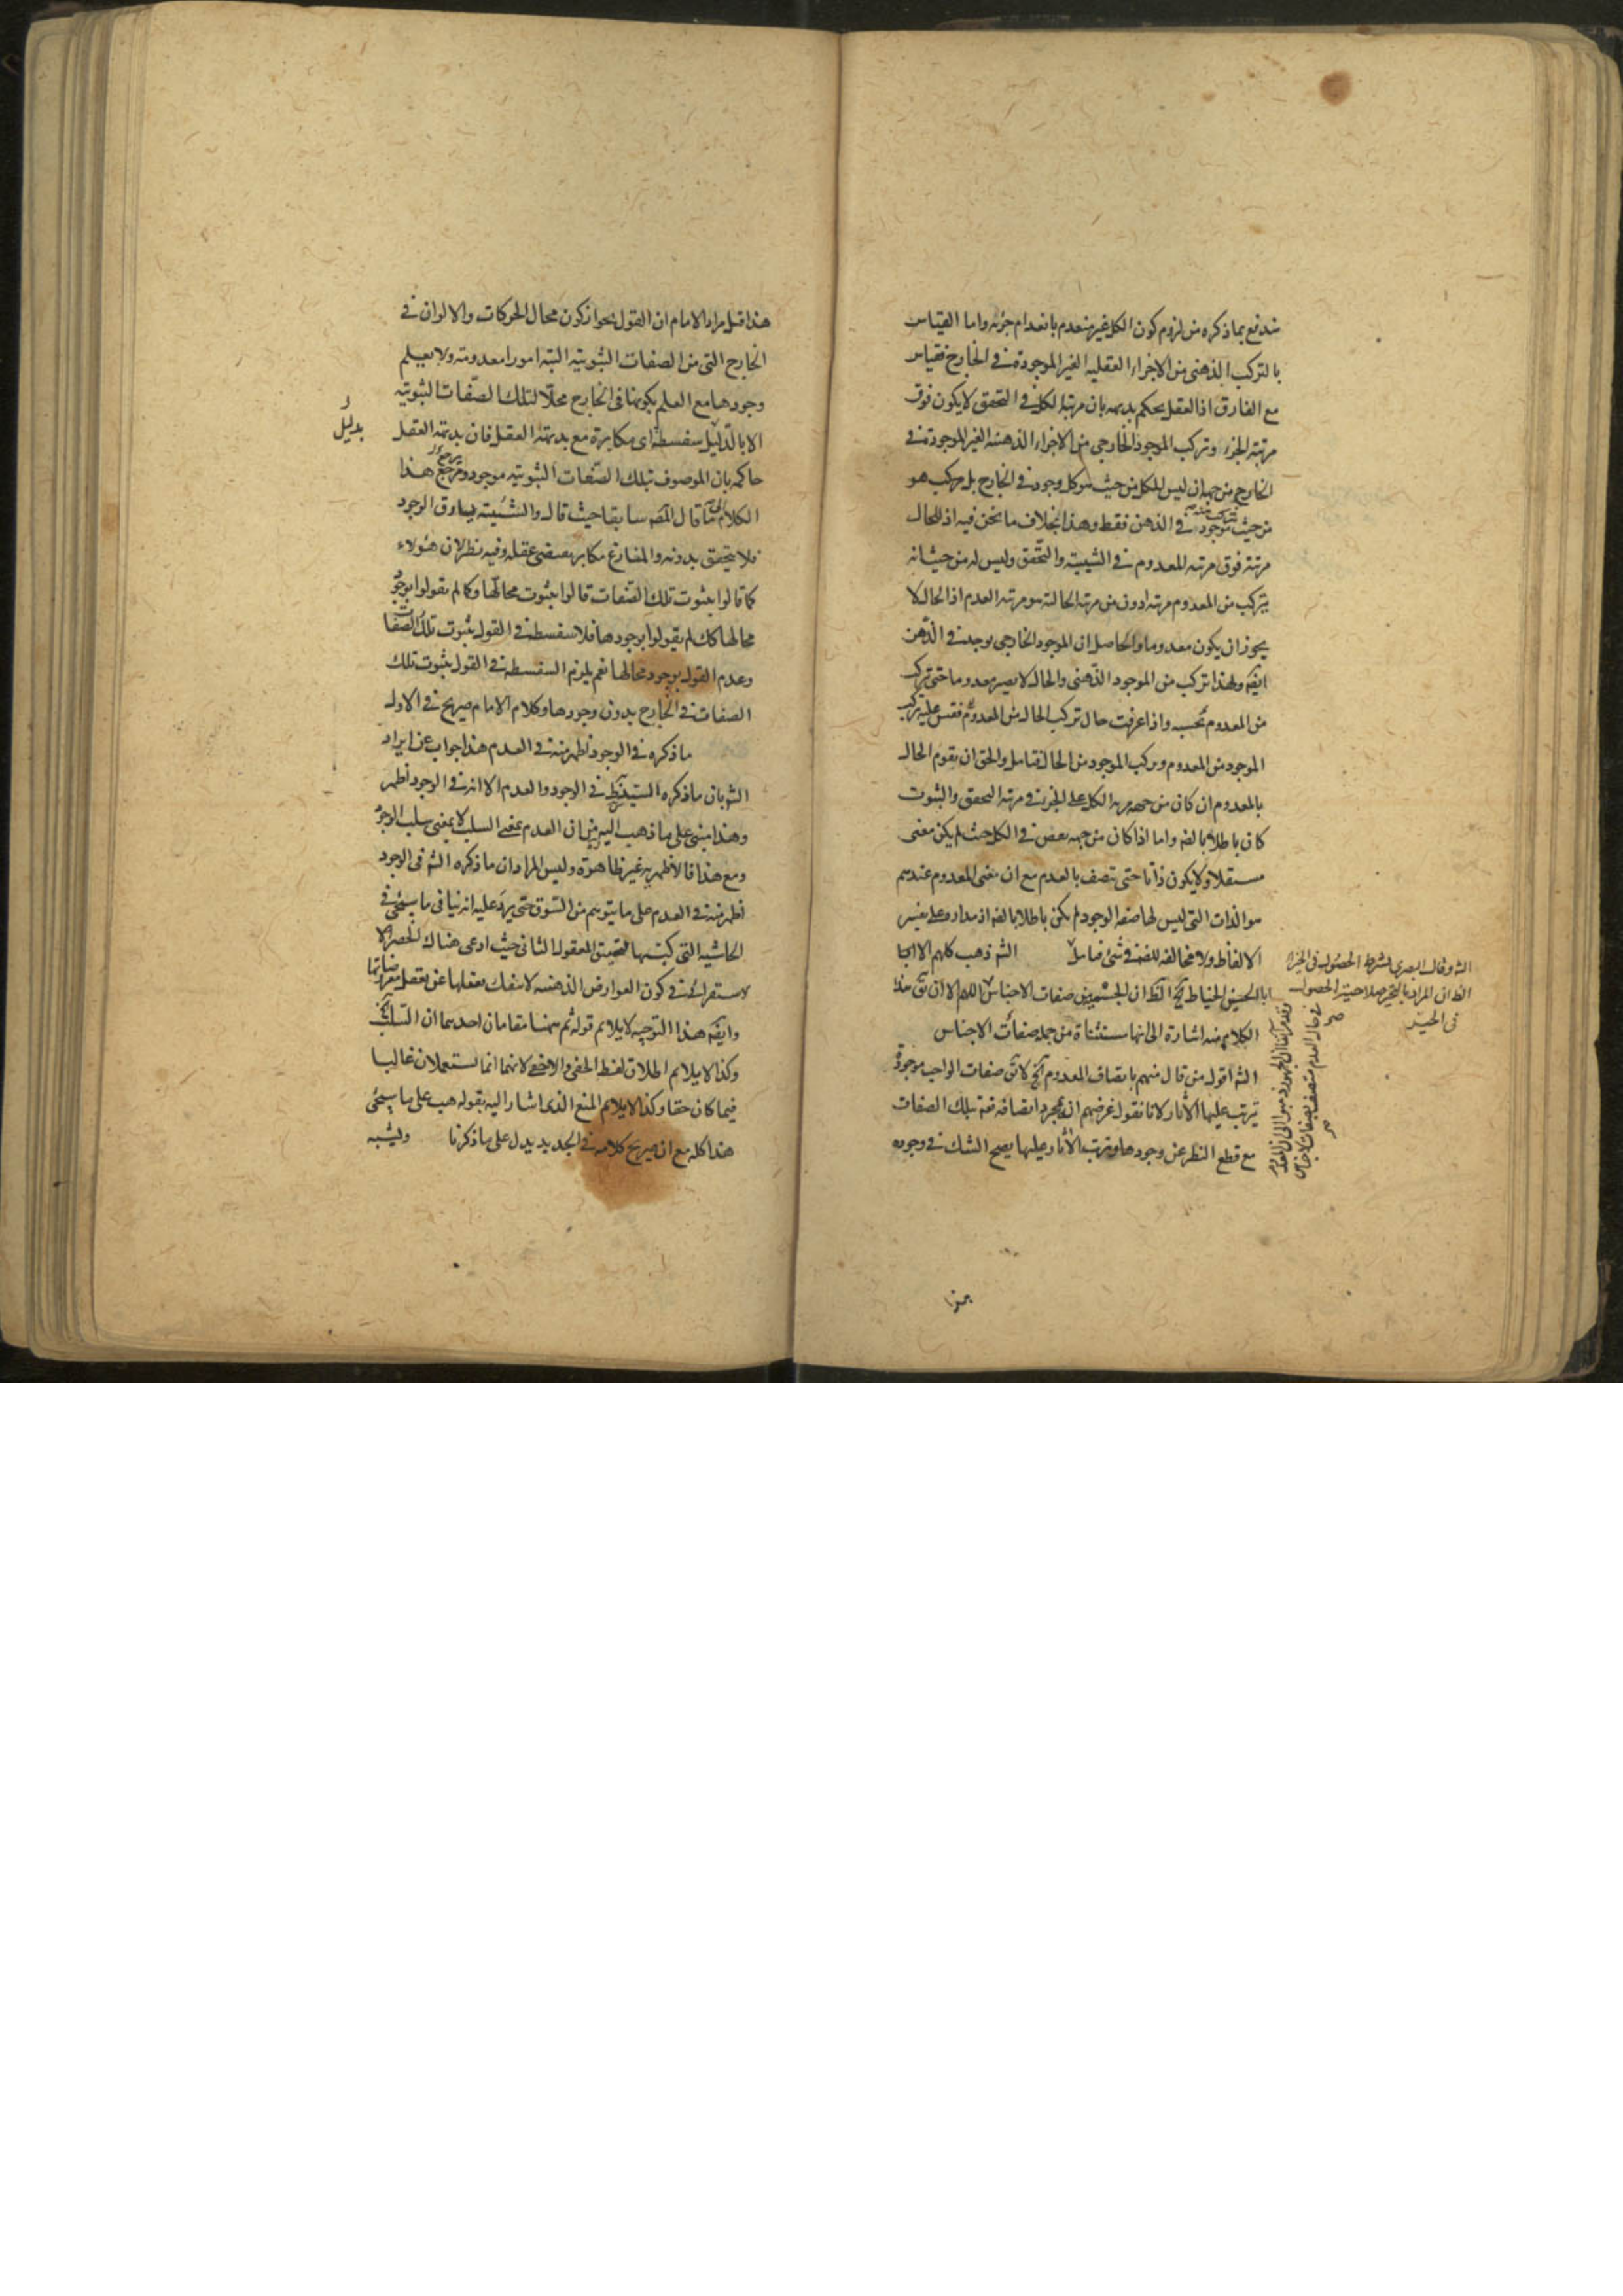 مندفع بما ذكره من لزوم كون الكل غير منعدم بانعدام جزئه واما القياس
بالتركب الذهنى من الاجزاء العقليه الغير الموجودة فى الخارج فقياس
مع الفارق اذ العقل يحكم بديهه بان مرتبة الكل فى التحقق لا يكون فوق
مرتبة الجزء وتركب الموجود الخارجى من الاجزاء الذهنيه الغير الموجودة فى
الخارج من جهة ان ليس للكل من حيث هو كل وجود فى الخارج بل مركب هو
من حيث موجود فى الذهن فقط وهذا بخلاف ما نحن فيه اذ للحال
مرتبة فوق مرتبه المعدوم فى الشيئية والتحقق وليس له من حيث انه
يتركب من المعدوم مرتبه ادون من مرتبه الحالة هو مرتبه العدم اذ الحال لا
يجوز ان يكون معدوما والحاصل ان الموجود الخارجى يوجد فى الذهن
ايضه ولهذا تركب من الموجود الذهنى والحال لا يصير معدوما حتى تركب
من المعدوم بحسبه واذا عرفت حال تركب الحال من المعدوم فقس عليه تركب
الموجود من المعدوم وتركب الموجود من الحال فتامل والحق ان تقوم الحال
بالمعدوم ان كان من جهة مزية الكل على الجزء فى مرتبه التحقق والثبوت
كان باطلا بالضه واما اذا كان من جهه بعض فى الكل حيث لم يكن معنى
مستقلا ولا يكون ذاتا حتى تتصف بالعدم مع ان معنى المعدوم عندهم
هو الذات التى ليس لها صفه الوجود لم يكن باطلا بالضه اذ مداره على تفسير
الالفاظ ولا مخالفه للضه فى شىء فتامل الشه ذهب كلهم الا ابا
ابا الحسين الخياط آخ الظ ان الجسميه من صفات الاجناس اللهم الا ان يق هذا
الكلام منه اشارة الى انها مستثناة من جمله صفات الاجناس
الشه اقول من قال منهم باتصاف المعدوم آخ لا يق صفات الواجب موجودة
يترتب عليها الآثار لانا نقول غرضهم ان بمجرد اتصافه تعه بتلك الصفات
مع قطع النظر عن وجودها وترتب الآثار عليها يصح الشك فى وجوده
الشه وقال البصرى بشرط الحصول فى الحيز
الظ ان المراد بالتحيز صلاحية الحصول
فى الحيز
وقد مر آنفا ان الجمهور ذهبوا الى ان المعدوم
فى حال العدم متصف بصفات الاجناس
صح
هذا قيل مراد الامام ان القول بجواز كون محال الحركات والالوان فى
الخارج التى من الصفات الثبوتيه البته امورا معدومة ولا يعلم
وجودها مع العلم بكونها فى الخارج محلا لتلك الصفات الثبوتيه
الا بالدليل سفسطة اى مكابرة مع بديهة العقل فان بديهة العقل
بدليل
حاكمه بان الموصوف بتلك الصفات الثبوتيه موجود ومرجع هذا
الكلام الى ما قال المصه سابقا حيث قال والشيئية يساوق الوجود
فلا يتحقق بدونه والمنازع مكابر بمقتضى عقله وفيه نظر لان هؤلاء
كما قالوا بثبوت تلك الصفات قالوا بثبوت محالها وكما لم يقولوا بوجود
محالها كك لم يقولوا بوجودها فلا سفسطة فى القول بثبوت تلك الصفات
وعدم القول بوجود محالها نعم يلزم السفسطة فى القول بثبوت تلك
الصفات فى الخارج بدون وجودها وكلام الامام صريح فى الاول
ما ذكره فى الوجود اظهر منه فى العدم هذا جواب عن ايراد
الشه بان ما ذكره السيد فى الوجود والعدم الا انه فى الوجود اظهر
وهذا مبنى على ما ذهب اليه من ان العدم بمعنى السلب لا بمعنى سلب الوجود
ومع هذا فالاظهريه غير ظاهرة وليس المراد ان ما ذكره الشه فى الوجود
اظهر منه فى العدم على ما يتوهم من السوق حتى يرد عليه انه ينافى ما سيجئ فى
الحاشيه التى كتبها لتحقيق المعقول الثانى حيث ادعى هناك الحصر الا
ستقرائى فى كون العوارض الذهنيه لا ينفك تعقلها عن تعقل معروضاتها
وايضه هذا التوجيه لا يلائم قوله ثم ههنا مقامان احدهما ان السلب آخ
وكذا لا يلائم اطلاق لفظ الخفى والاخفى لانهما انما يستعملان غالبا
فيما كان حقا وكذا لا يلائم المنع الذى اشار اليه بقوله هب على ما سيجئ
هذا كله مع ان صريح كلامه فى الجديد يدل على ما ذكرنا وليشبه